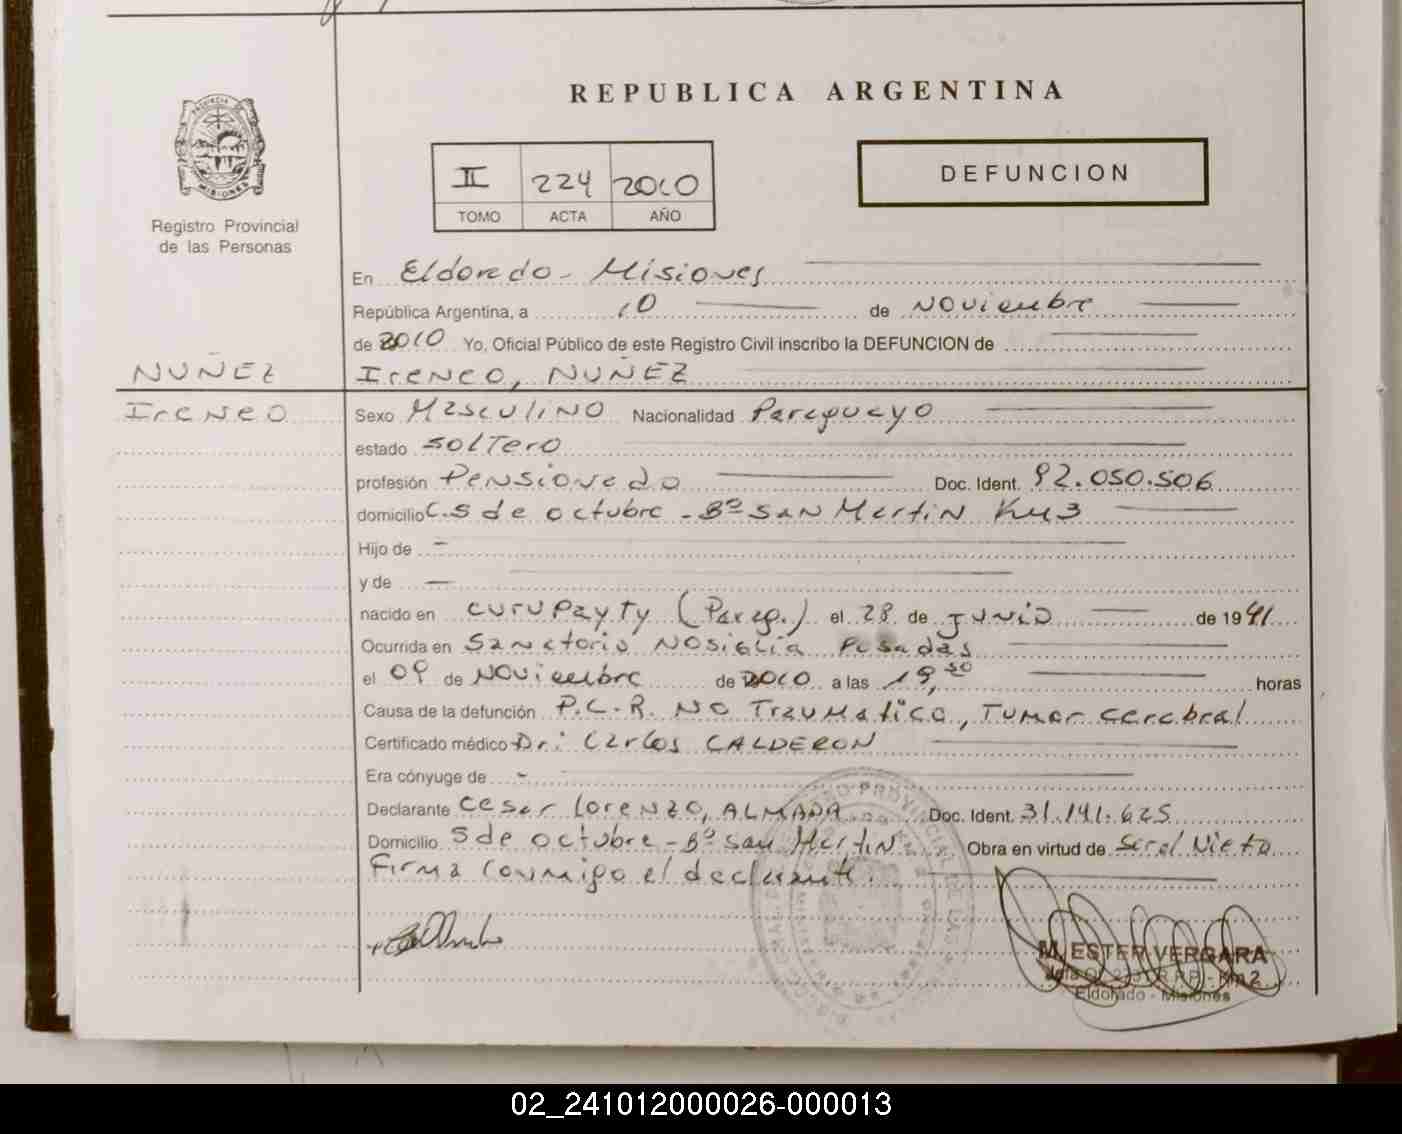 REPUBLICA ARGENTINA
PROVINCIA DE
MISIONES
Registro Provincial
de las Personas
II 224 2010
TOMO ACTA AÑO
DEFUNCION
En Eldorado - Misiones
República Argentina, a 10 de Noviembre
de 2010 Yo, Oficial Público de este Registro Civil inscribo la DEFUNCION de
NUÑEZ Ireneo, NUÑEZ
Ireneo Sexo Masculino Nacionalidad Paraguayo
estado Soltero
profesión Pensionado Doc. Ident. 92.050.506
domicilio C. 5 de octubre - Bº San Martin Km 3
Hijo de -
y de -
nacido en Curupayty (Parag.) el 28 de Junio de 1941
Ocurrida en Sanatorio Nosiglia Posadas
el 09 de Noviembre de 2010 a las 19,50 horas
Causa de la defunción P.C.R. No Traumatico, Tumor cerebral
Certificado médico Dr: Carlos CALDERON
Era cónyuge de -
Declarante Cesar Lorenzo, ALMADA Doc. Ident. 31.191.625
Domicilio 5 de octubre - Bº San Martin Obra en virtud de Seral Nieto
Firma conmigo el declarante.
M. ESTER VERGARA
Km 2
Eldorado - Misiones
02_241012000026-000013